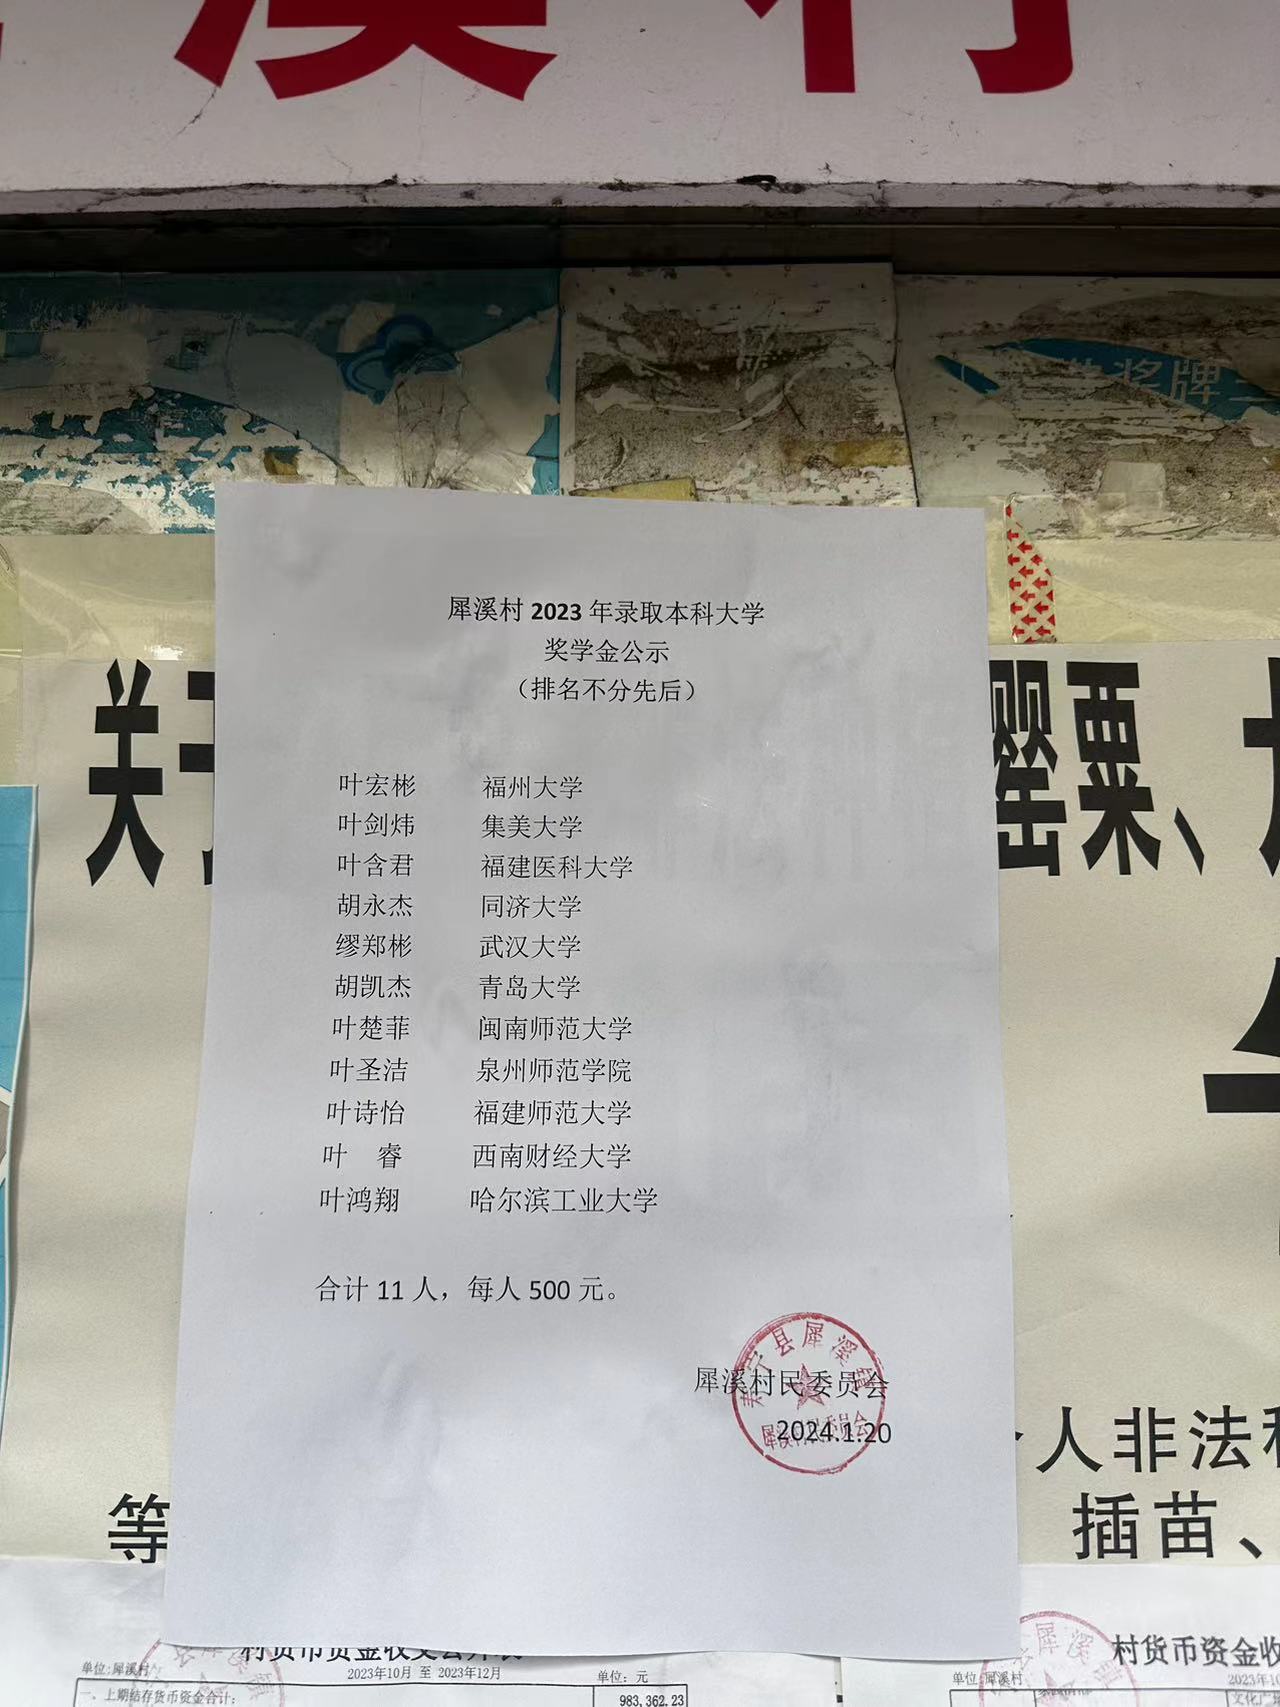 溪村
奖牌三
关于
罂粟、
犀溪村 2023 年录取本科大学
奖学金公示
（排名不分先后）
叶宏彬 福州大学
叶剑炜 集美大学
叶含君 福建医科大学
胡永杰 同济大学
缪郑彬 武汉大学
胡凯杰 青岛大学
叶楚菲 闽南师范大学
叶圣洁 泉州师范学院
叶诗怡 福建师范大学
叶 睿 西南财经大学
叶鸿翔 哈尔滨工业大学
合计 11 人，每人 500 元。
犀溪村民委员会
2024.1.20
寿宁县犀溪镇
犀溪村民委员会
人非法种
等
插苗、
村货币资金收支公开表
单位:犀溪村
2023年10月 至 2023年12月
单位：元
一、上期结存货币资金合计:
983,362.23
村货币资金收
单位:犀溪村
2023年10